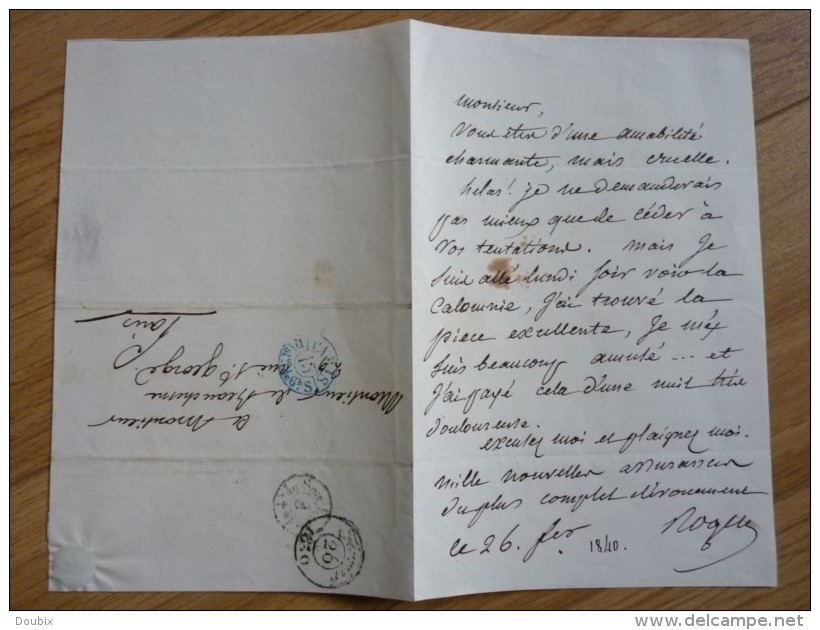 monsieur,
Vous êtes d'une amabilité
charmante, mais cruelle.
helas! je ne demanderais
pas mieux que de céder à
vos tentations. mais je
suis allé lundi soir voir la
Calomnie, j'ai trouvé la
piece excellente, je m'y
suis beaucoup amusé... et
j'ai payé cela d'une nuit très
douloureuse.
excusez moi et plaignez moi.
mille nouvelles assurances
du plus complet dévouement
Roger
ce 26. fev
1840.
a Monsieur
Monsieur de Beauchesne
rue St. george
Paris
26
1840
Doubix
www.delcampe.net